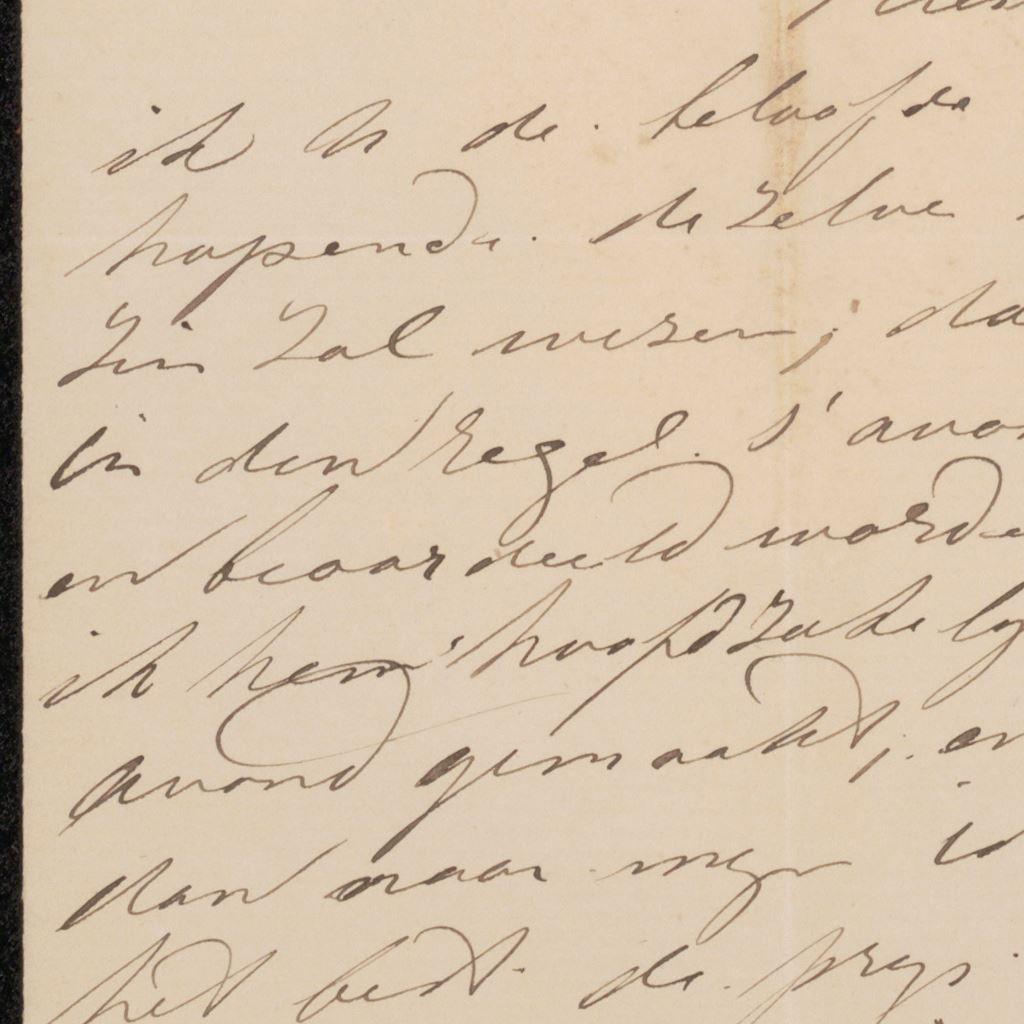 ik U de beloofde
hopende dezelve
Zin Zal wezen; da
in den regel s' avon
en beoordeeld worde
ik hem hoofdzakely
avond gemaakt; en
dan naar myn id
het best de prys